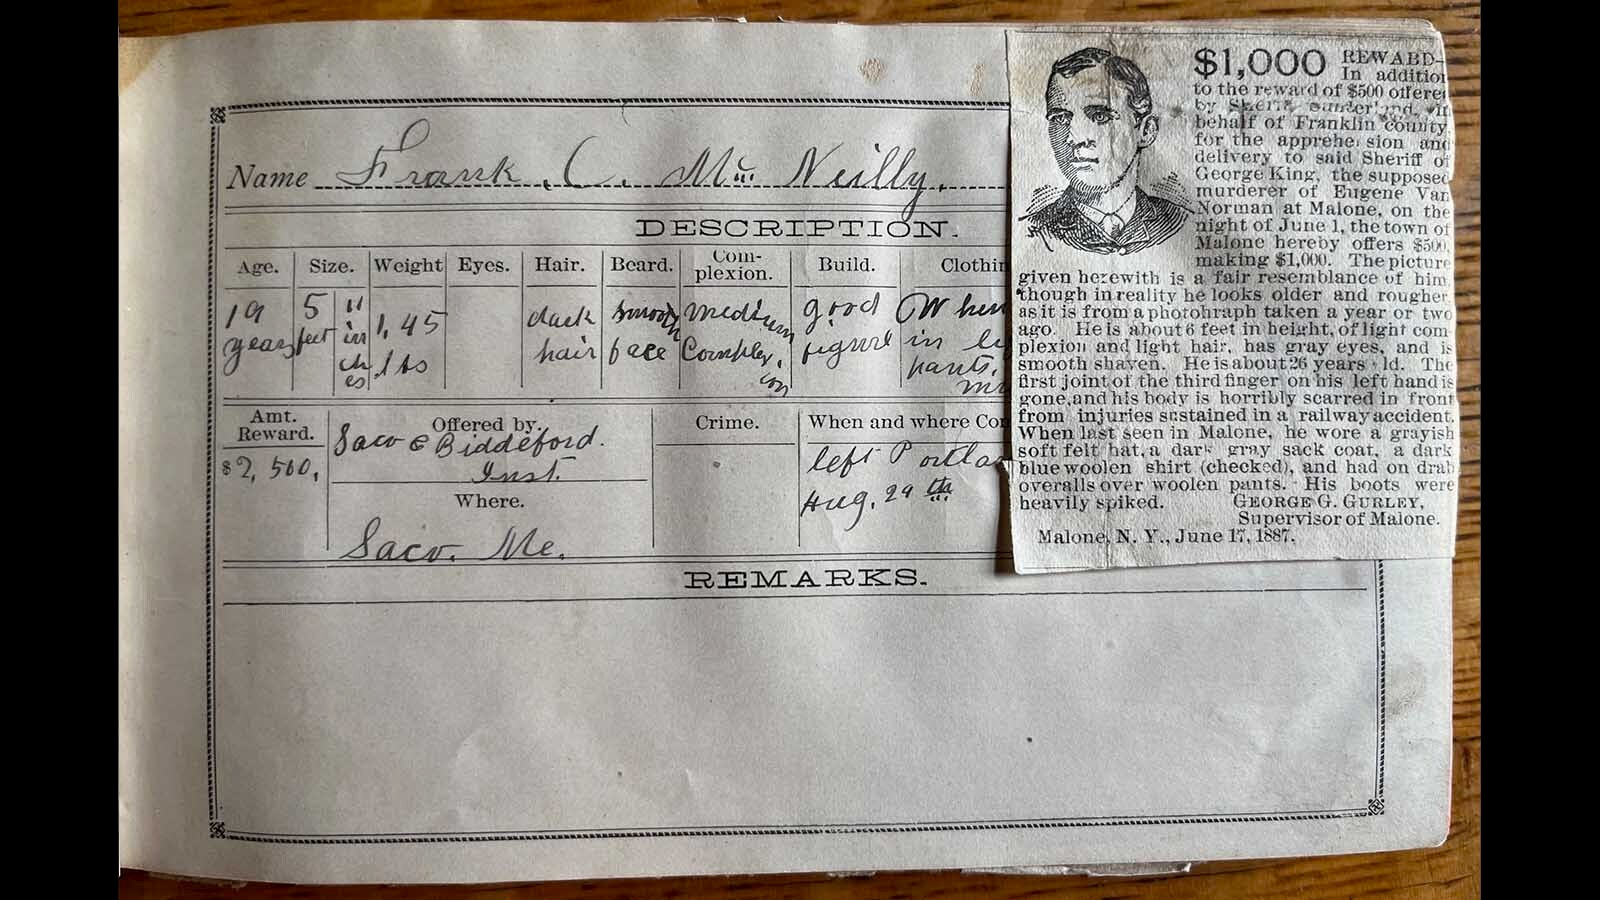 Name Frank, C. Mc Neilly.
DESCRIPTION.
Age. Size. Weight Eyes. Hair. Beard. Com-plexion. Build. Clothin
19 years
5 feet
11 inches
1,45 lbs
dark hair
smooth face
medium Complexion
good figure
When
in li
pants,
Amt. Reward.
$2,500,
Offered by.
Saco & Biddeford.
Inst.
Where.
Saco. Me.
Crime.
When and where Con
left Portlan
Aug. 29th
REMARKS.
$1,000 REWARD—
In addition
to the reward of $500 offered
by Sheriff Sunderland, in
behalf of Franklin county,
for the apprehe sion and
delivery to said Sheriff of
George King, the supposed
murderer of Eugene Van
Norman at Malone, on the
night of June 1, the town of
Malone hereby offers $500,
making $1,000. The picture
given herewith is a fair resemblance of him
though in reality he looks older and rougher
as it is from a photohraph taken a year or two
ago. He is about 6 feet in height, of light com
plexion and light hair, has gray eyes, and is
smooth shaven. He is about 26 years ld. The
first joint of the third finger on his left hand is
gone, and his body is horribly scarred in front
from injuries sustained in a railway accident.
When last seen in Malone, he wore a grayish
soft felt hat, a dark gray sack coat, a dark
blue woolen shirt (checked), and had on drab
overalls over woolen pants. His boots were
heavily spiked. GEORGE G. GURLEY,
Supervisor of Malone.
Malone, N. Y., June 17, 1887.